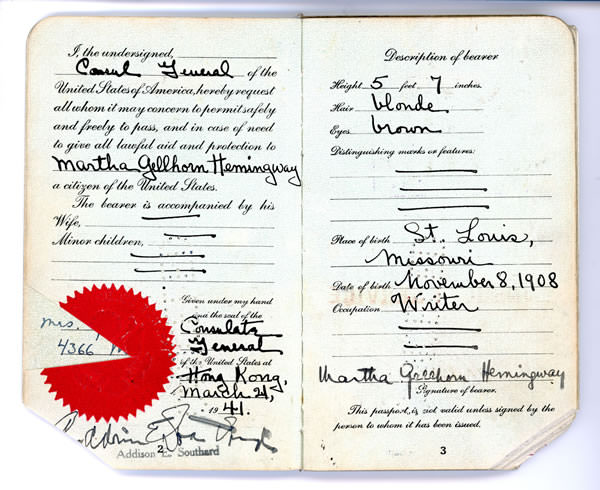 I, the undersigned,
Consul General of the
United States of America, hereby request
all whom it may concern to permit safely
and freely to pass, and in case of need
to give all lawful aid and protection to
Martha Gellhorn Hemingway
a citizen of the United States.
The bearer is accompanied by his
Wife,
Minor children,
Given under my hand
and the seal of the
Consulate
General
of the United States at
Hong Kong,
March 21,
1941.
Mrs.
4366
Addison E. Southard
2
Description of bearer
Height 5 feet 7 inches.
Hair blonde
Eyes brown
Distinguishing marks or features:
Place of birth St. Louis,
Missouri
Date of birth November 8, 1908
Occupation Writer
Martha Gellhorn Hemingway
Signature of bearer.
This passport, is not valid unless signed by the
person to whom it has been issued.
3